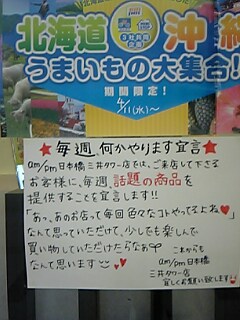 北海道 沖縄
うまいもの大集合!
期間限定!
4/1(水)~
★毎週、何かやります宣言★
am/pm 日本橋三井タワー店では、ご来店して下さる
お客様に、毎週、話題の商品を
提供することを宣言します!!
「あっ、あのお店って毎回色々なコトやってるよね♥」
なんて思っていただけて、少しでも楽しんで
買い物していただけたらなぁ
なんて思います
これからも
am/pm 日本橋
三井タワー店
宜しくお願い致します